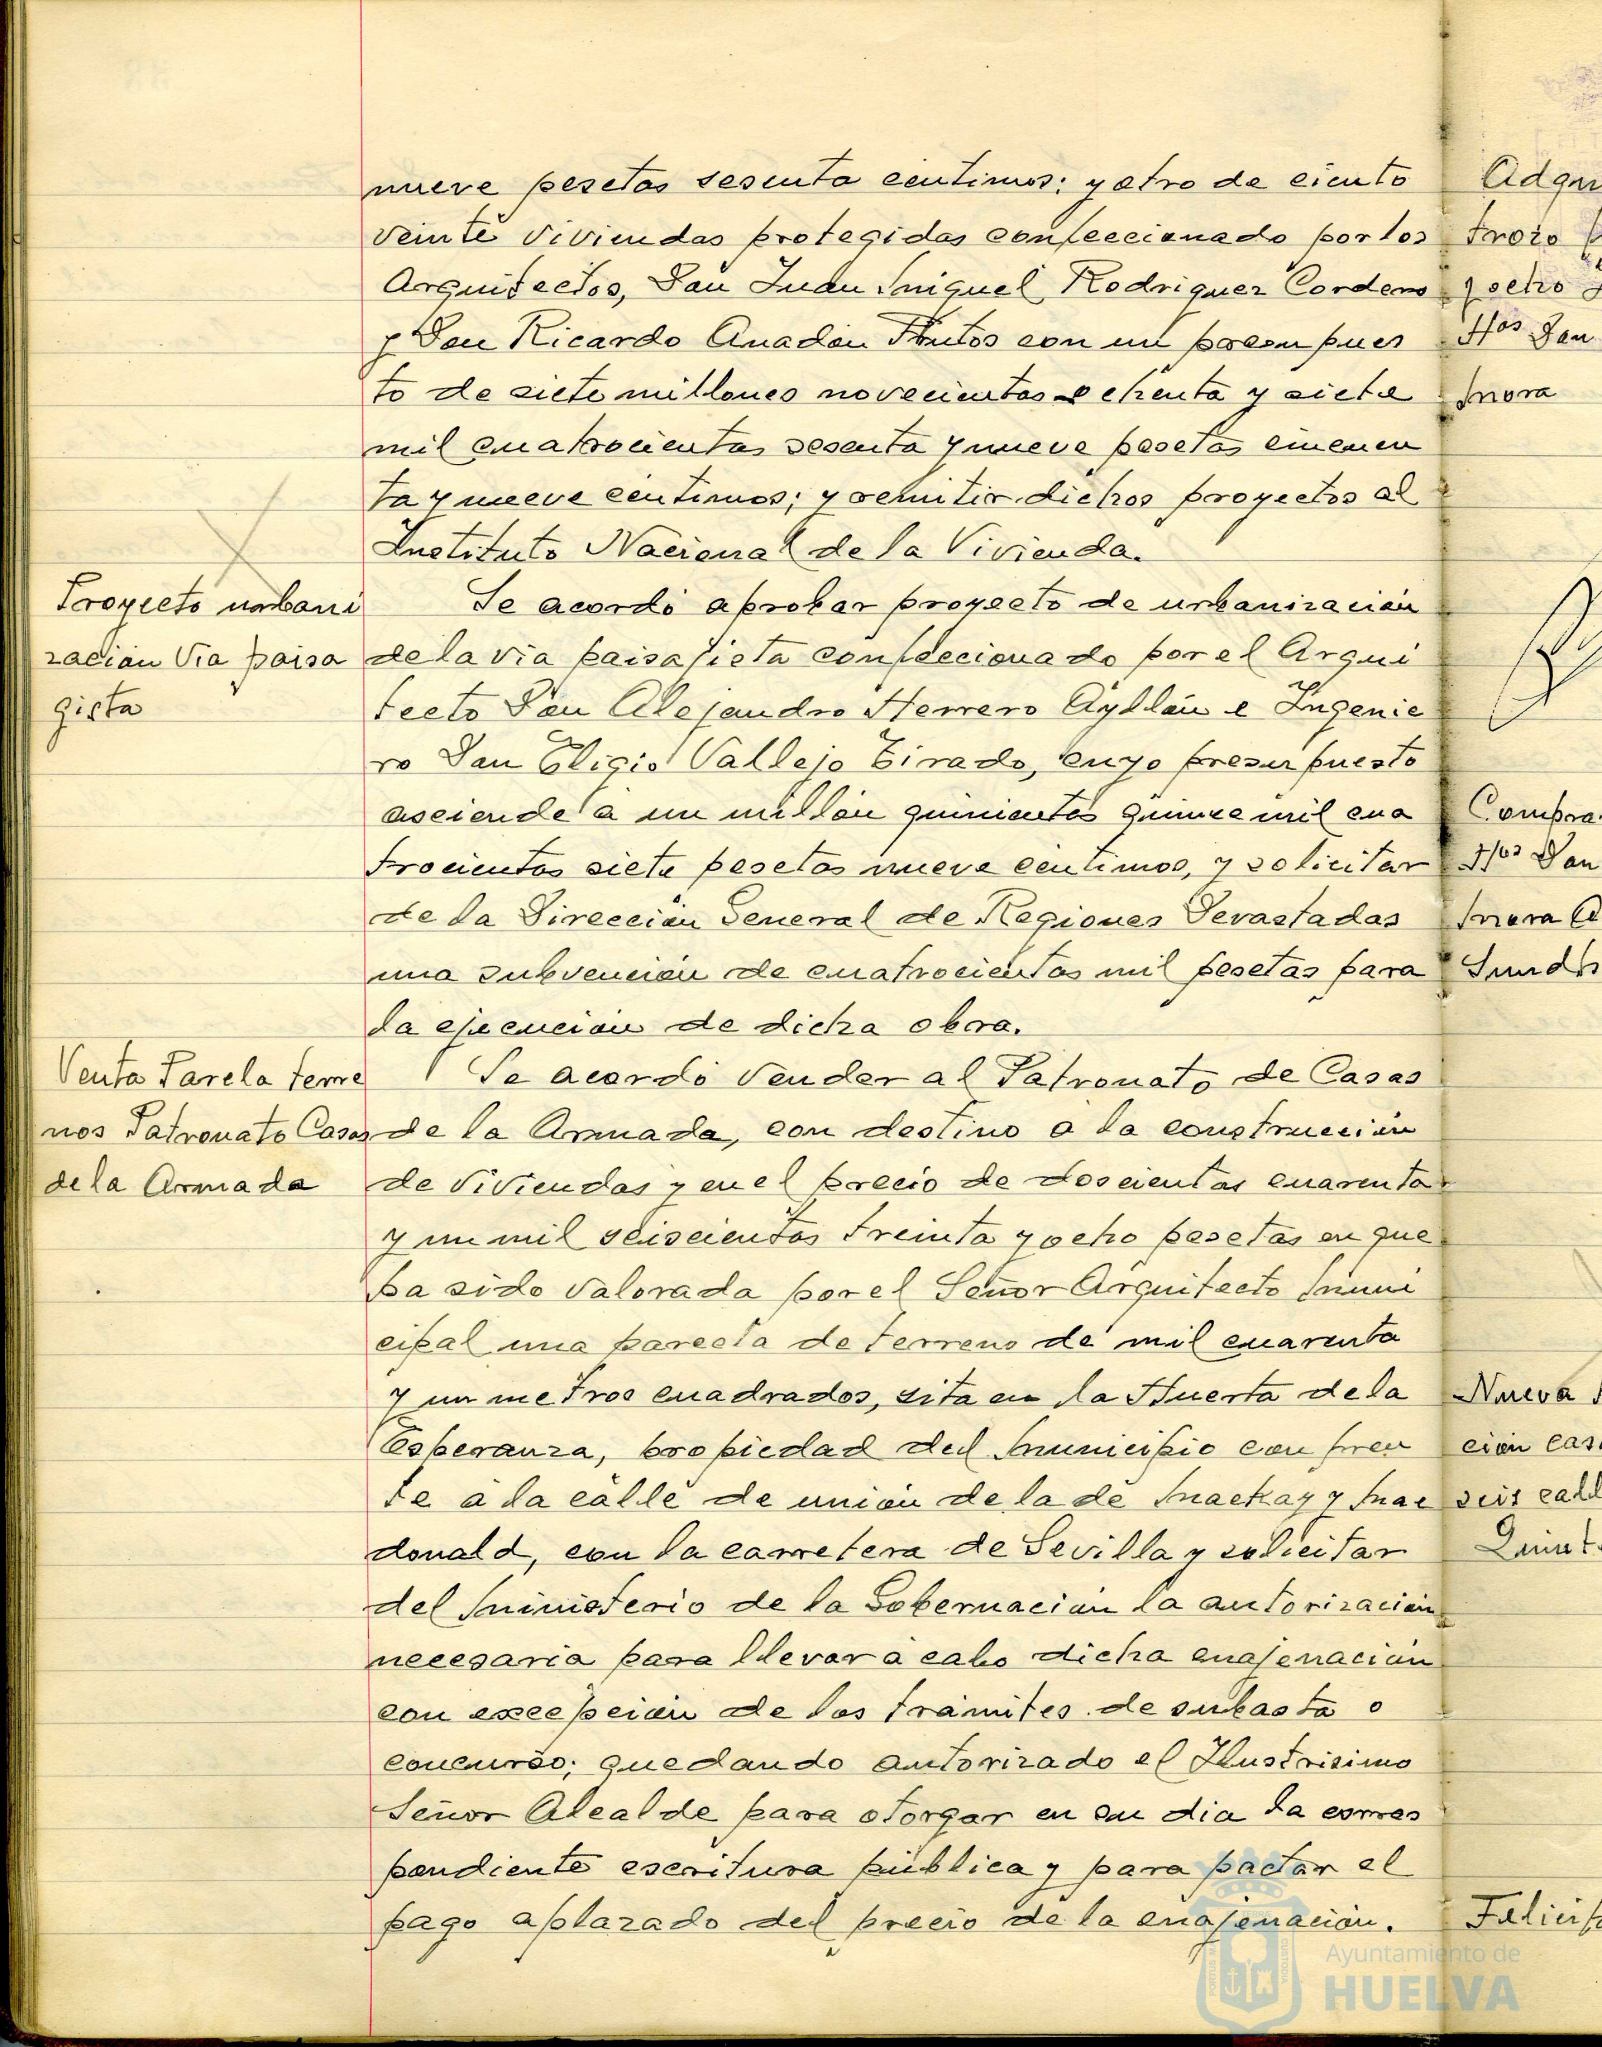 nueve pesetas sesenta centimos; y otro de ciento
veinte viviendas protegidas confeccionado por los
Arquitectos, Don Juan Miguel Rodriguez Cordero
y Don Ricardo Anadón Frutos con un presupues
to de siete millones novecientas ochenta y siete
mil cuatrocientas sesenta y nueve pesetas cincuen
ta y nueve centimos; y remitir dichos proyectos al
Instituto Nacional de la Vivienda.
Proyecto urbani
zación Via paisa
gista
Se acordó aprobar proyecto de urbanización
de la via paisajista confeccionado por el Arqui
tecto Don Alejandro Herrero Ayllón e Ingenie
ro Don Eligio Vallejo Tirado, cuyo presupuesto
asciende a un millón quinientas quince mil cua
trocientas siete pesetas nueve centimos, y solicitar
de la Dirección General de Regiones Devastadas
una subvención de cuatrocientas mil pesetas para
la ejecución de dicha obra.
Venta Parcela terre
nos Patronato Casas
de la Armada
Se acordó vender al Patronato de Casas
de la Armada, con destino a la construcción
de viviendas y en el precio de doscientas cuarenta
y un mil seiscientas treinta y ocho pesetas en que
ha sido valorada por el Señor Arquitecto Muni
cipal una parcela de terreno de mil cuarenta
y un metros cuadrados, sita en la Huerta de la
Esperanza, propiedad del Municipio con fren
te a la calle de unión de la de Mackay y Mac
donald, con la carretera de Sevilla y solicitar
del Ministerio de la Gobernación la autorización
necesaria para llevar a cabo dicha enajenación
con excepción de los trámites de subasta o
concurso; quedando autorizado el Ilustrisimo
Señor Alcalde para otorgar en su dia la corres
pondiente escritura pública y para pactar el
pago aplazado del precio de la enajenación.
Adqui
trozo
y ocho
Hos Don
Mora
Compra
Hos Don
Mora
Nueva
ción cas
seis call
Quint
Felicit
Ayuntamiento de
HUELVA